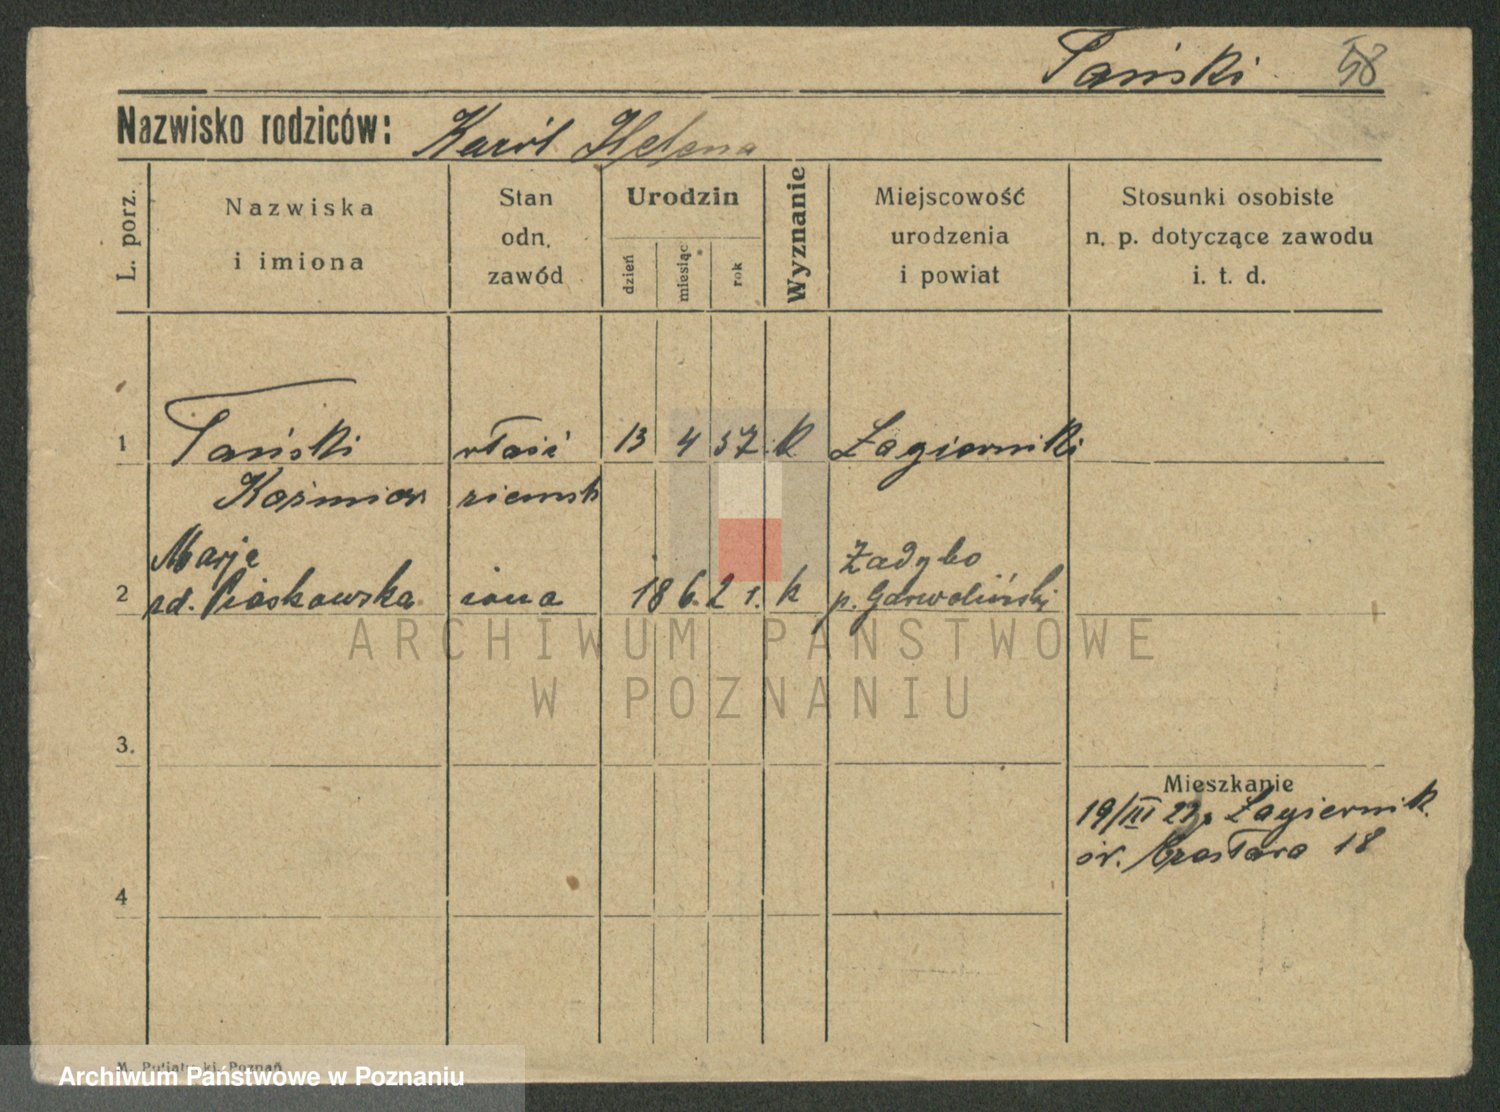 Tański 58
Nazwisko rodziców: Karól Helena
L. porz.
Nazwiska
i imiona
Stan
odn.
zawód
Urodzin
dzień
miesiąc
rok
Wyznanie
Miejscowość
urodzenia
i powiat
Stosunki osobiste
n. p. dotyczące zawodu
i. t. d.
1 Tański właść 13 4 57 k Łagiewniki
Kaźmierz ziemsk
Marja Żadybo
2 rd. Piaskowska żona 18 6. 2 1. k p. Garwoliński
ARCHIWUM PAŃSTWOWE
W POZNANIU
3.
Mieszkanie
19/III 23. Łagiewnik.
św. 18
4
Poznań
Archiwum Państwowe w Poznaniu